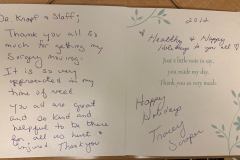 Dr. Knopf & Staff;
Thank you all so
much for getting my
Surgery moving.
It is so very
appreciated in my
time of need
You all are great
and so kind and
helpful to be there
for all us hurt &
injured. Thank you
2012
Healthy & Happy
Holidays to you all
Just a little note to say,
you made my day.
Thank you so very much.
Happy
Holidays
Tracey